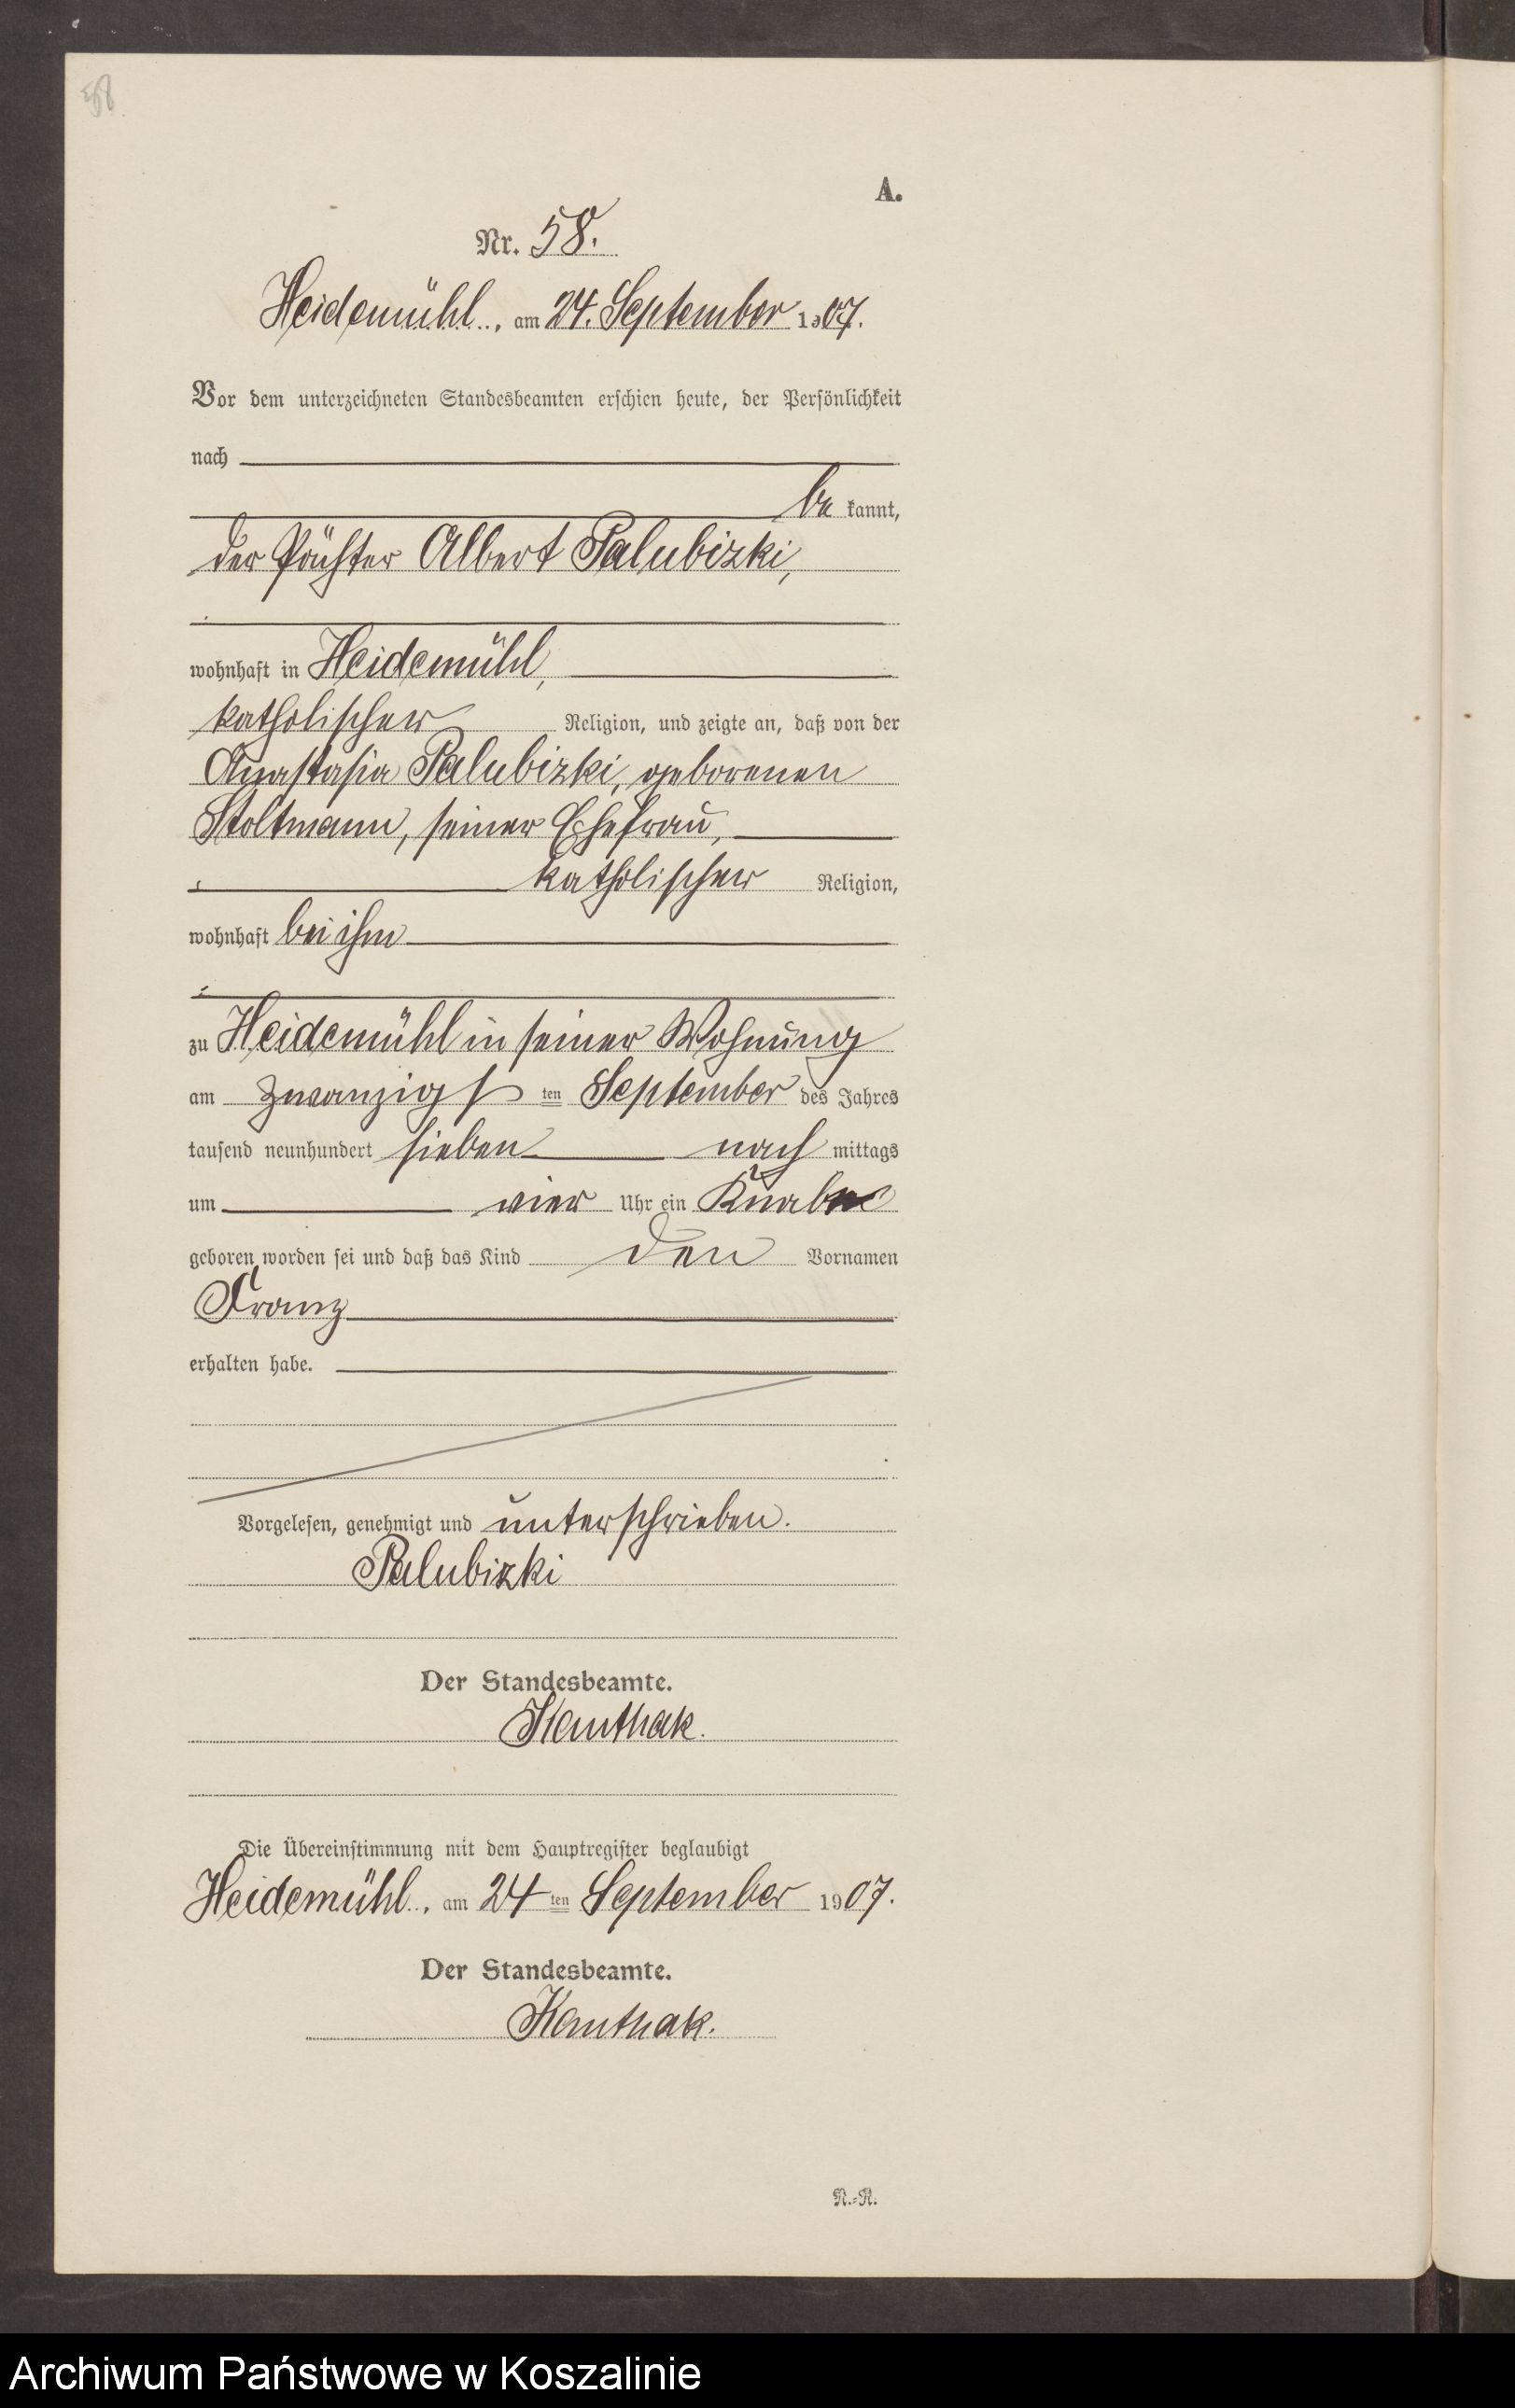 58
A.
Nr. 58.
Heidemühl, am 24. September 1907.
Vor dem unterzeichneten Standesbeamten erschien heute, der Persönlichkeit
nach
be kannt,
der Pächter Albert Palubizki,
wohnhaft in Heidemühl,
katholischer Religion, und zeigte an, daß von der
Anastasia Palubizki, geborenen
Stoltmann, seiner Ehefrau,
katholischer Religion,
wohnhaft bei ihm
zu Heidemühl in seiner Wohnung
am zwanzigs ten September des Jahres
tausend neunhundert sieben nach mittags
um vier Uhr ein Knabe
geboren worden sei und daß das Kind den Vornamen
Franz
erhalten habe.
Vorgelesen, genehmigt und unterschrieben.
Palubizki
Der Standesbeamte.
Kanthak.
Die Übereinstimmung mit dem Hauptregister beglaubigt
Heidemühl, am 24 ten September 1907.
Der Standesbeamte.
Kanthak.
N.-R.
Archiwum Państwowe w Koszalinie